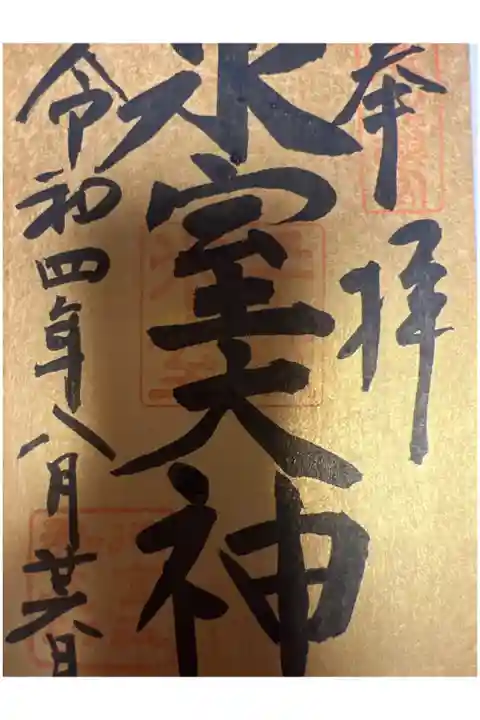 奉拝
氷室大神
令和四年八月廿六日